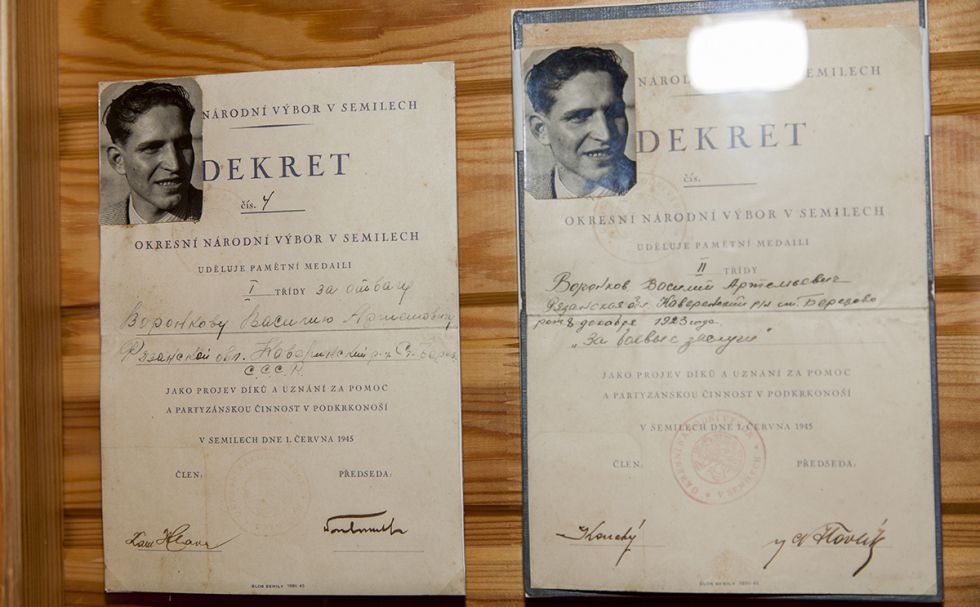 NÁRODNÍ VÝBOR V SEMILECH
DEKRET
čís. 4
OKRESNÍ NÁRODNÍ VÝBOR V SEMILECH
UDĚLUJE PAMĚTNÍ MEDAILI
I TŘÍDY за отвагу
Воронкову Василию Артемович
Рязанской обл. Каверинский р-н
С.С.С.Р.
JAKO PROJEV DÍKŮ A UZNÁNÍ ZA POMOC
A PARTYZÁNSKOU ČINNOST V PODKRKONOŠÍ
V SEMILECH DNE 1. ČERVNA 1945
ČLEN: PŘEDSEDA:
NÁRODNÍ SEMILECH
DEKRET
čís.
OKRESNÍ NÁRODNÍ VÝBOR V SEMILECH
UDĚLUJE PAMĚTNÍ MEDAILI
II TŘÍDY
Воронков Василий Артемьевич
Рязанская обл. Каверенский р-н ст. Березово
рож 8 декабря 1923 года.
„За боевые заслуги"
JAKO PROJEV DÍKŮ A UZNÁNÍ ZA POMOC
A PARTYZÁNSKOU ČINNOST V PODKRKONOŠÍ
V SEMILECH DNE 1. ČERVNA 1945
ČLEN: PŘEDSEDA:
OKRESNÍ NÁRODNÍ VÝBOR
V SEMILECH